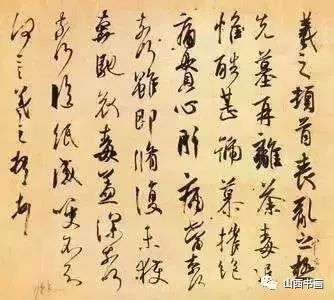 羲之頓首喪亂之極
先墓再離荼毒追
惟酷甚號慕摧絕
痛貫心肝痛當奈何
奈何雖即脩復未獲
奔馳哀毒益深奈何
奈何臨紙感哽不知
何言羲之頓首
山西书画